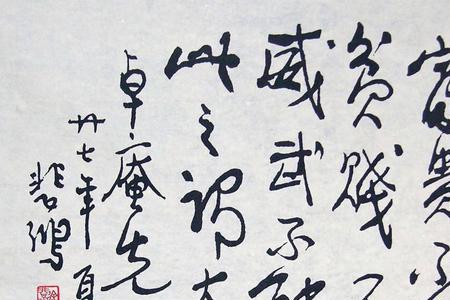 富貴不
貧賤不
威武不能
此之謂大
卓庵先
廿七年夏
悲鴻